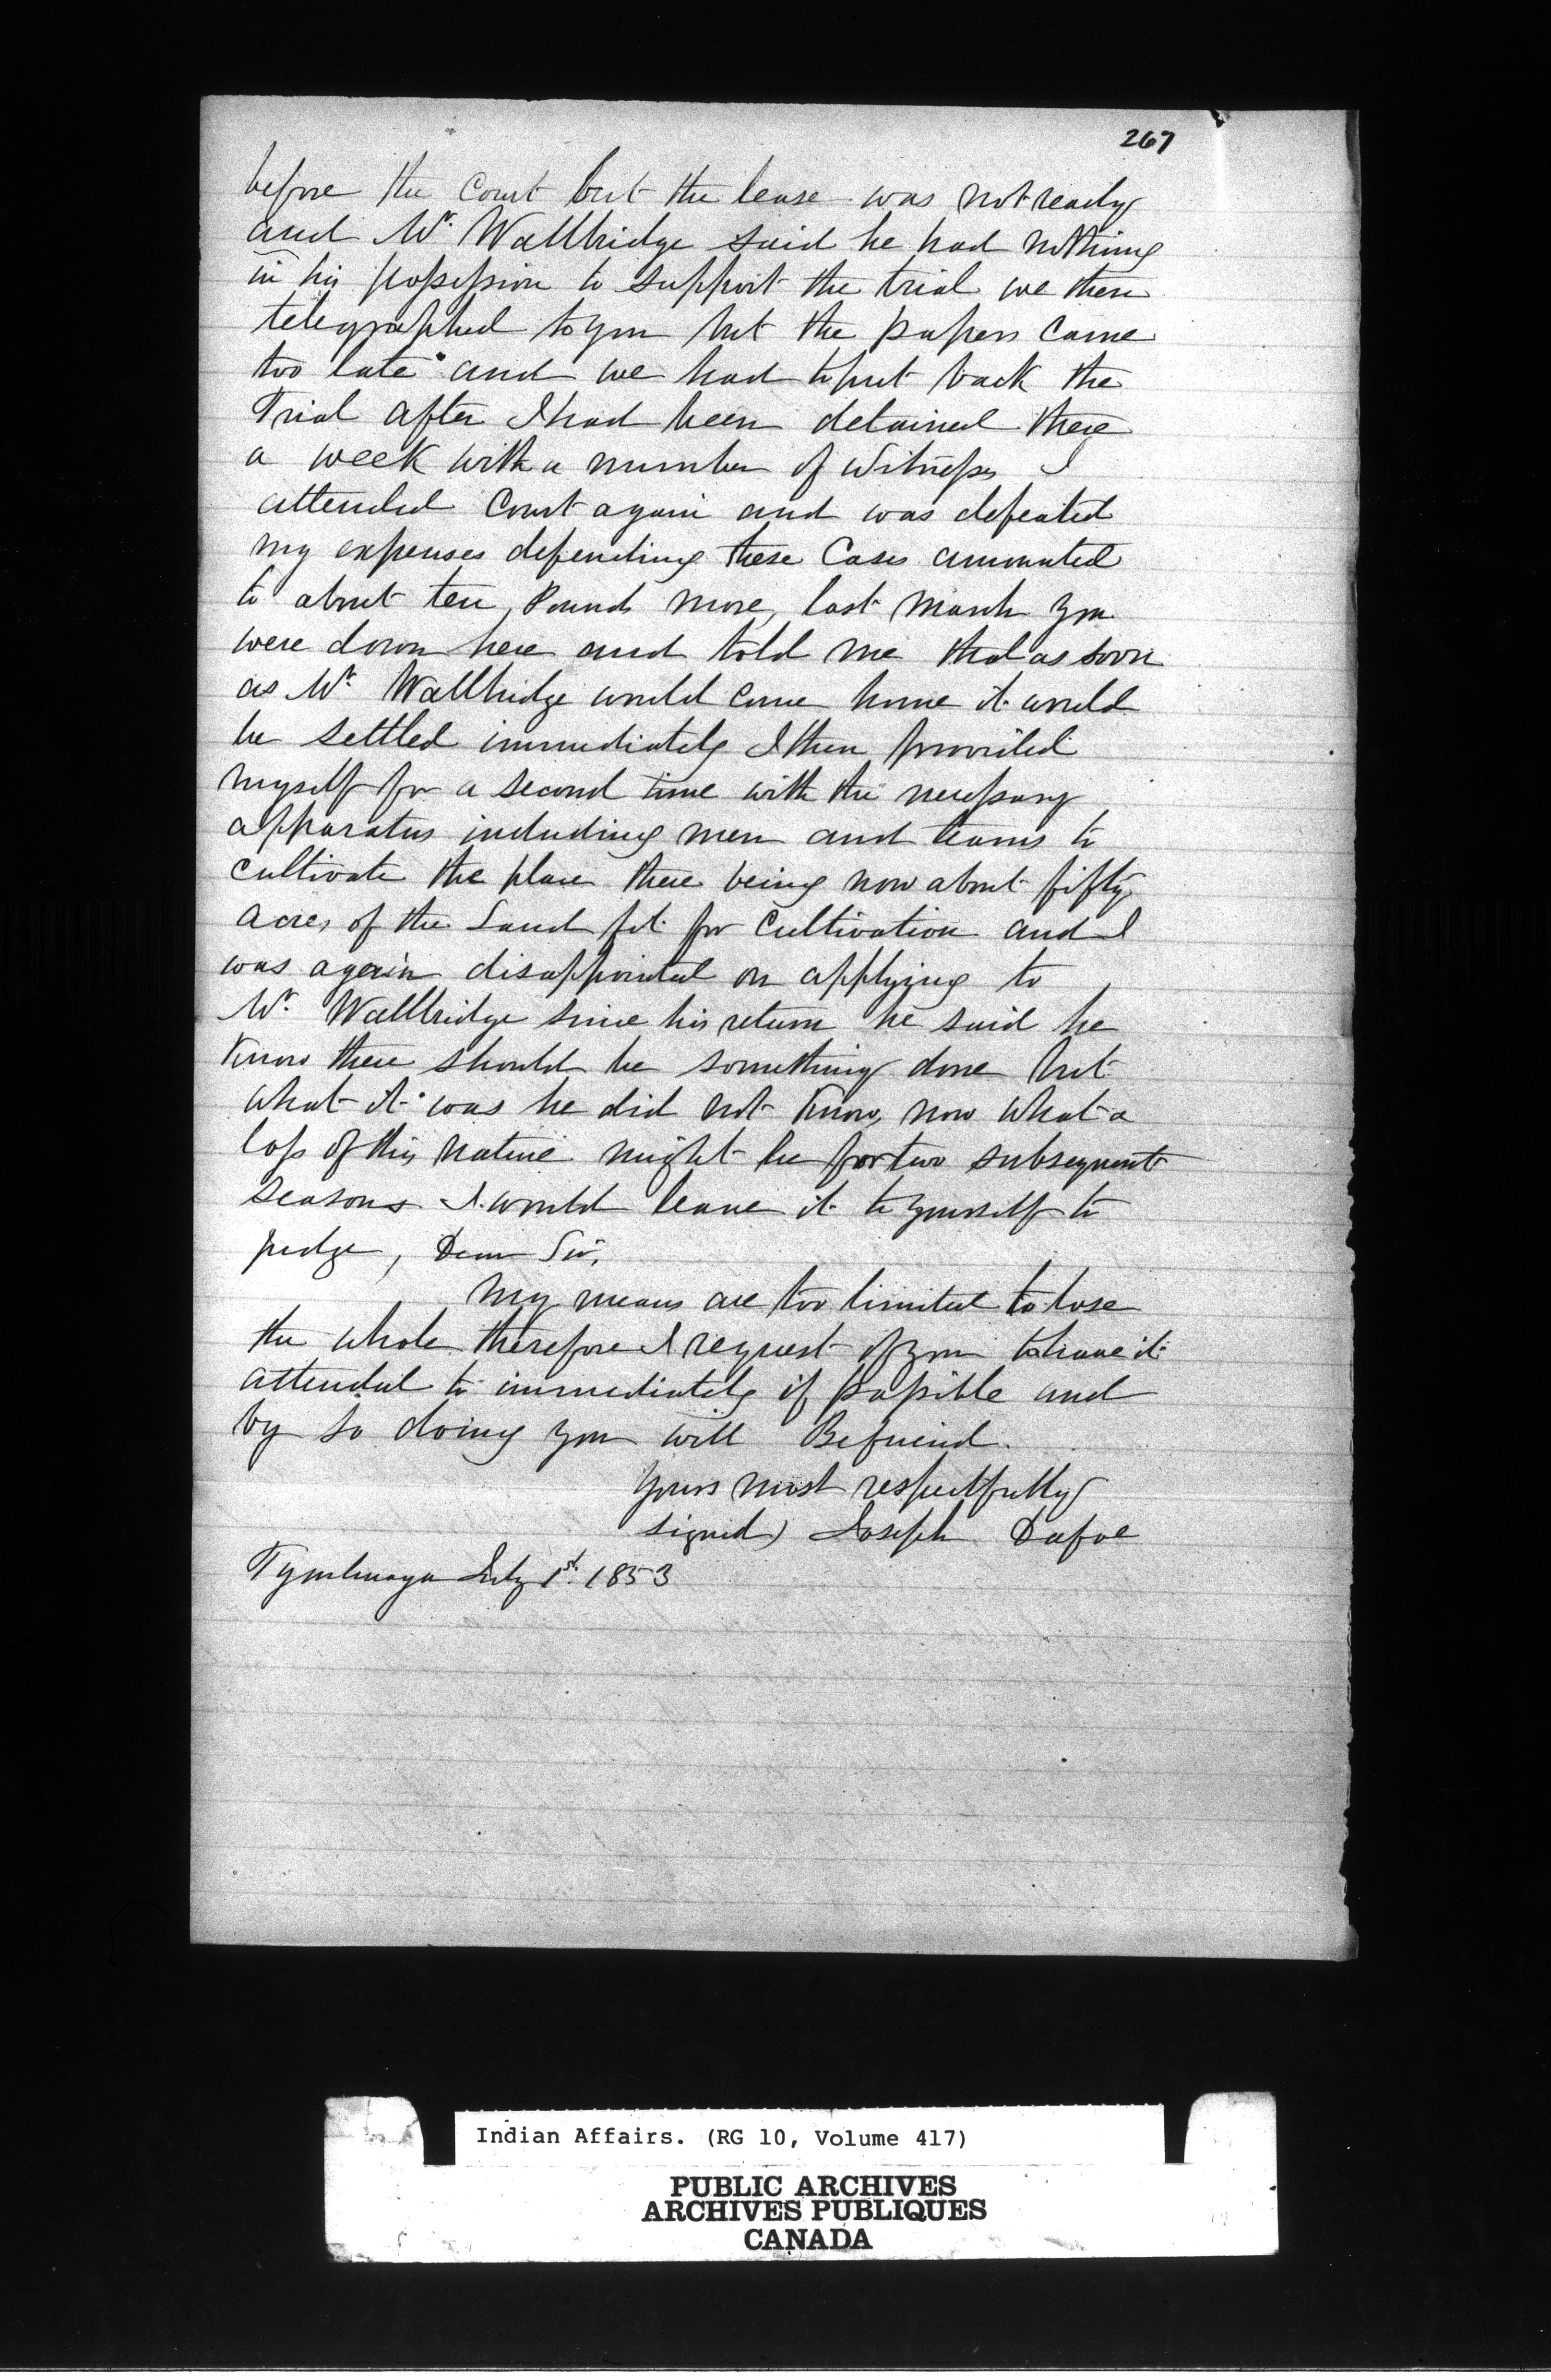 267
before the Court but the lease was not ready
and Mr. Wallbridge said he had nothing
in his possession to support the trial we then
telegraphed to you but the papers came
too late and we had to put back the
Trial after I had been detained there
a week with a number of Witness I
attended Court again and was defeated
my expenses defending these Cases amounted
to about ten Pounds more, last March you
were down here and told me that as soon
as Mr. Wallbridge would come home it would
be settled immediately I then provided
myself for a second time with the necessary
apparatus including men and teams to
cultivate the place there being now about fifty
acres of the Land fit for Cultivation and I
was again disappointed on applying to
Mr. Wallbridge since his return he said he
Know there should be something done but
what it was he did not Know, now what a
loss of this nature might be for two subsequent
seasons I would leave it to yourself to
judge, Dear Sir,
My means are too limited to lose
the whole therefore I request of you to have it
attended to immediately if possible and
by so doing you will Befriend.
Yours most respectfully
signed) Joseph Dafoe
Tyendinaga July 1st. 1853
Indian Affairs. (RG 10, Volume 417)
PUBLIC ARCHIVES
ARCHIVES PUBLIQUES
CANADA